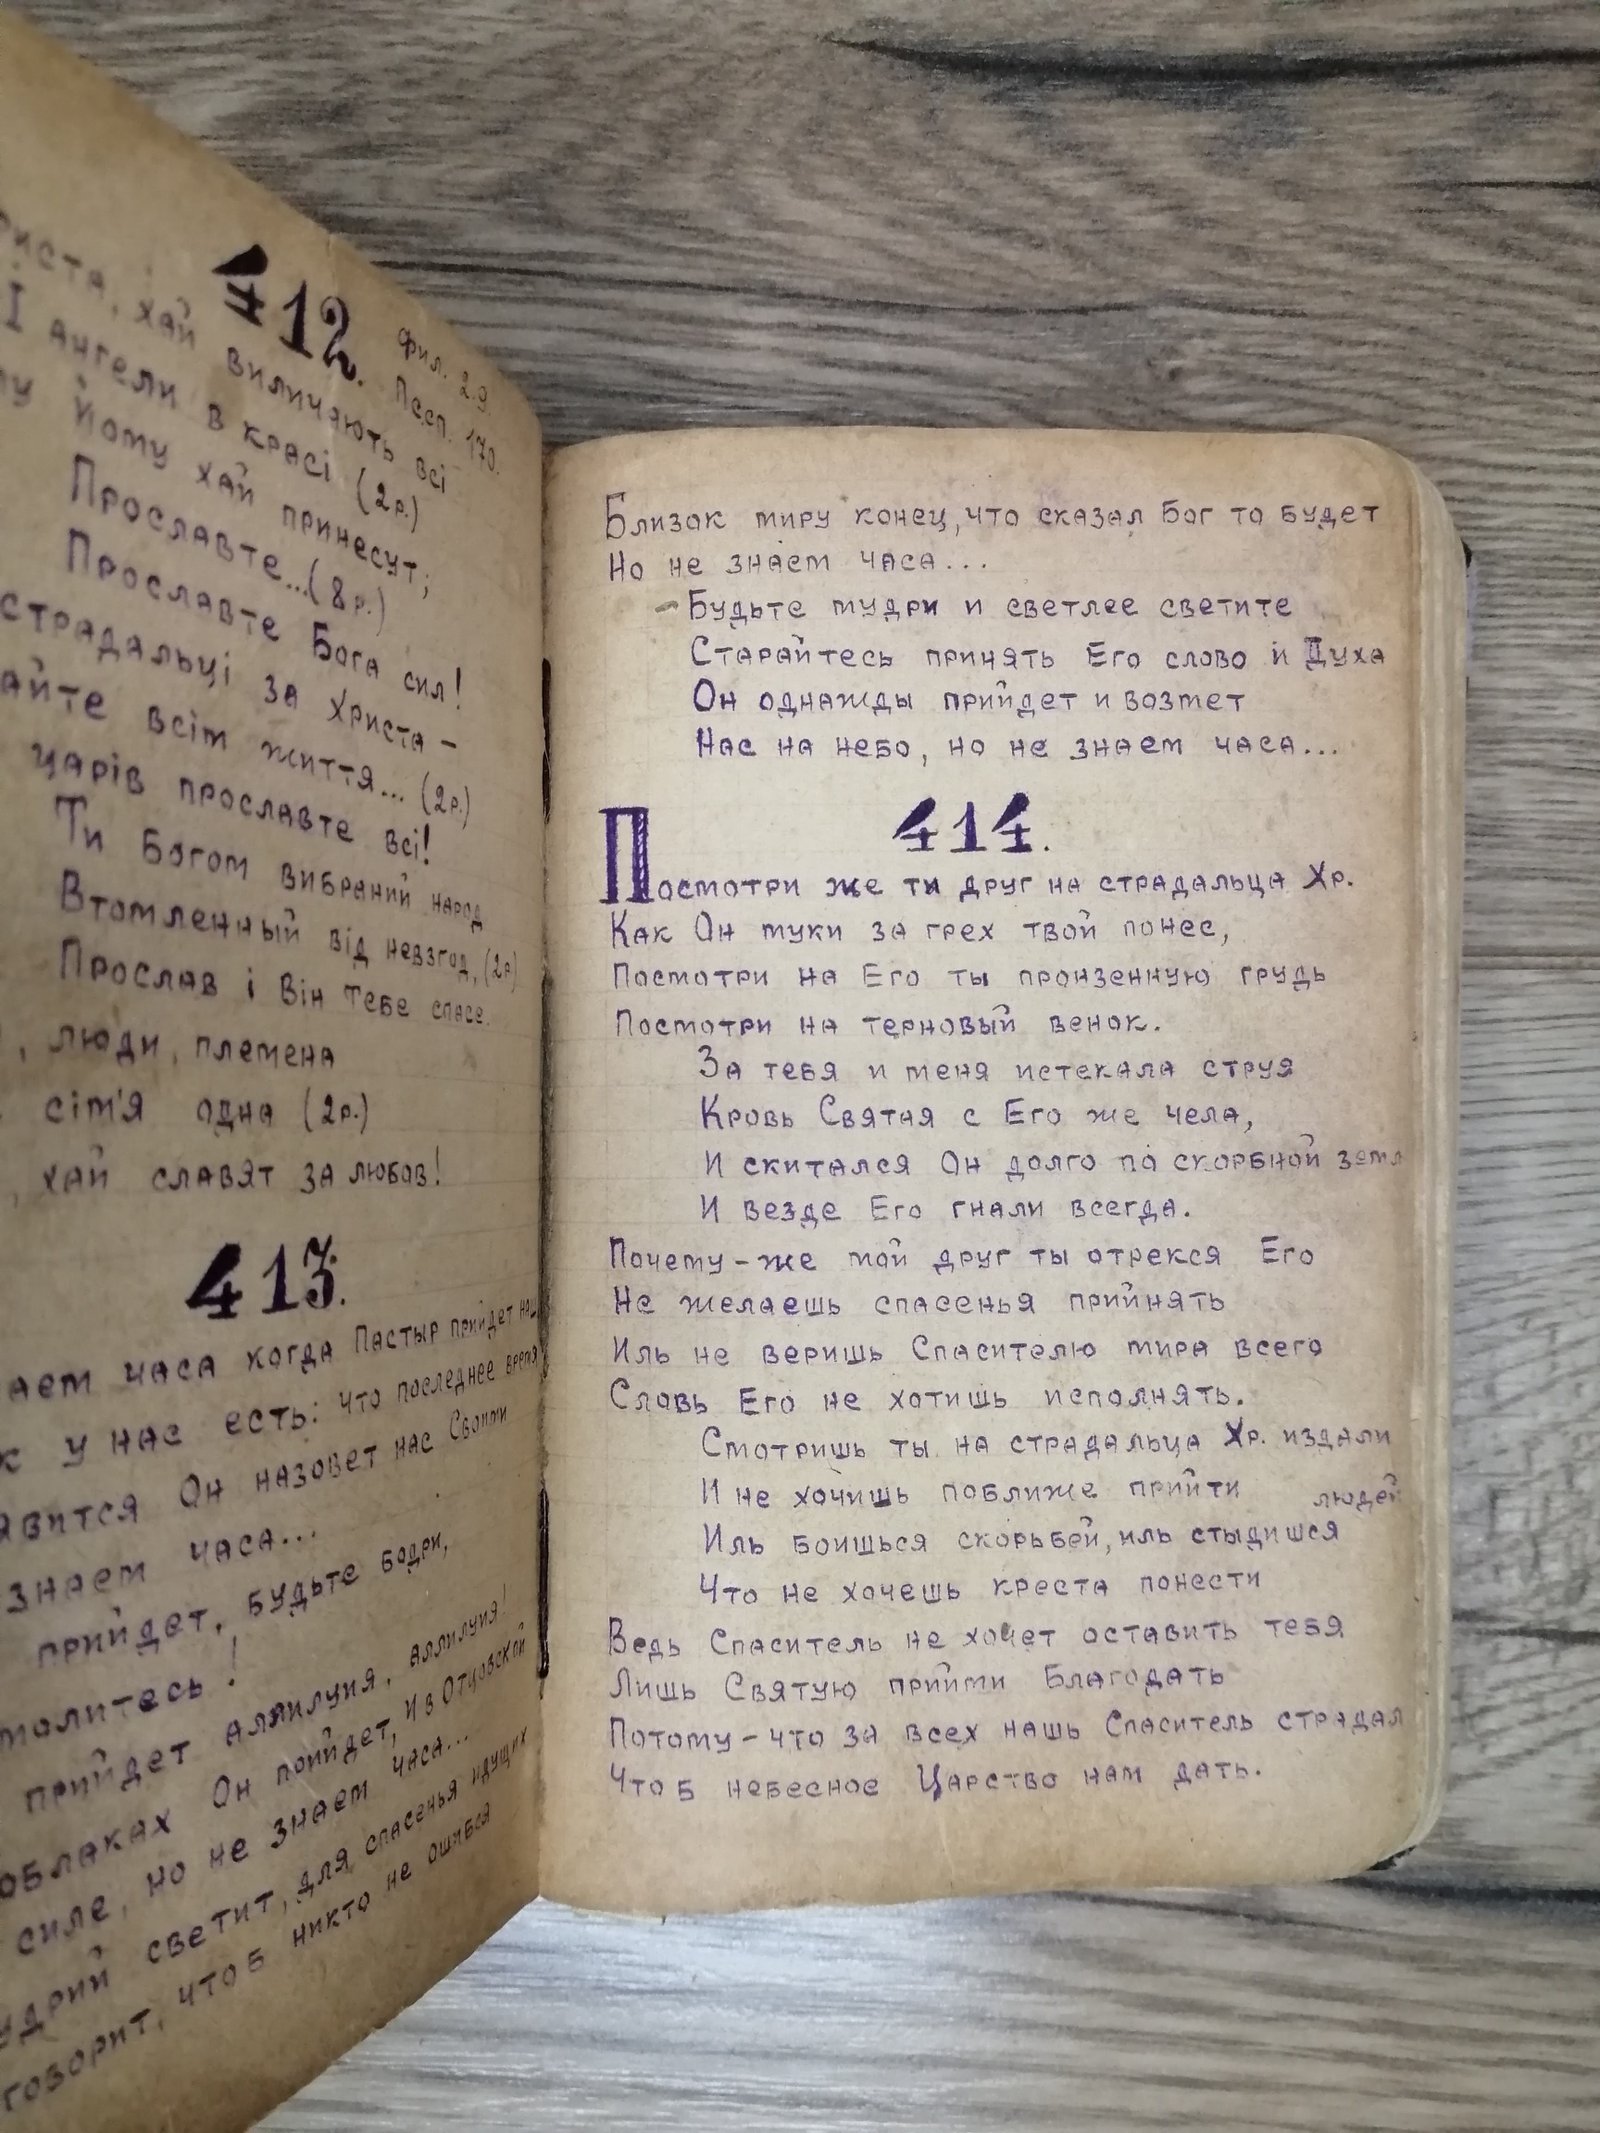 412.
Фил. 2.9.
Пс.сп. 170.
хай виличають всі
І ангели в красі (2р.)
йому хай принесут;
Прославте...(8р.)
Прославте Бога сил!
страдальці за Христа-
всім життя... (2р.)
царів прославте всі!
Ти Богом вибраний народ
Втомленный від невзгод, (2р)
Прослав і Він тебе спасе.
, люди, племена
сім'я одна (2р.)
, хай славят за любов!
413.
часа когда Пастыр прийдет
у нас есть: что последнее время
Он назовет нас Своими
знаем часа...
прийдет, будьте бодри,
молитесь!
прийдет аллилуия, аллилуия!
облаках Он прийдет, и в Отцовской
силе, но не знаем часа...
светит, для спасенья идущих
говорит, чтоб никто не ошибся
Близок миру конец, что сказал Бог то будет
Но не знаем часа...
-Будьте мудри и светлее светите
Старайтесь принять Его слово и Духа
Он однажды прийдет и возмет
Нас на небо, но не знаем часа...
414.
Посмотри же ти друг на страдальца Хр.
Как Он муки за грех твой понес,
Посмотри на Его ты пронзенную грудь
Посмотри на терновый венок.
За тебя и меня истекала струя
Кровь Святая с Его же чела,
И скитался Он долго по скорбной земл
И везде Его гнали всегда.
Почему-же мой друг ты отрекся Его
Не желаешь спасенья прийнять
Иль не веришь Спасителю мира всего
Словь Его не хотишь исполнять.
Смотришь ты на страдальца Хр. издали
И не хочишь поближе прийти
людей
Иль боишься скорьбей, иль стыдишся
Что не хочешь креста понести
Ведь Спаситель не хочет оставить тебя
Лишь Святую прийми Благодать
Потому-что за всех нашь Спаситель страдал
Чтоб небесное Царство нам дать.